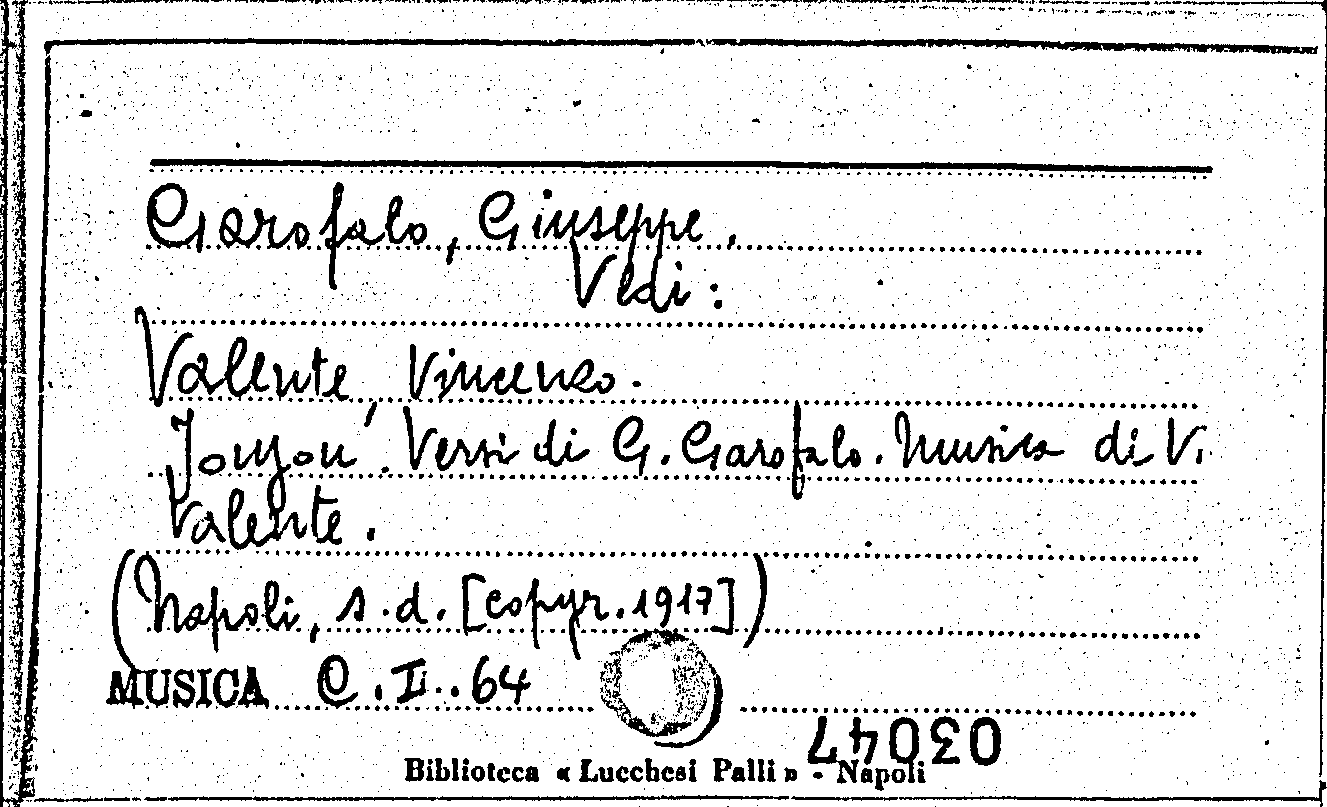 Garofalo, Giuseppe.
Vedi:
Valente, Vincenzo.
Joujou'. Versi di G. Garofalo. Musica di V.
Valente.
(Napoli, s.d. [copyr. 1917])
MUSICA C.I..64
03047
Biblioteca « Lucchesi Palli » - Napoli